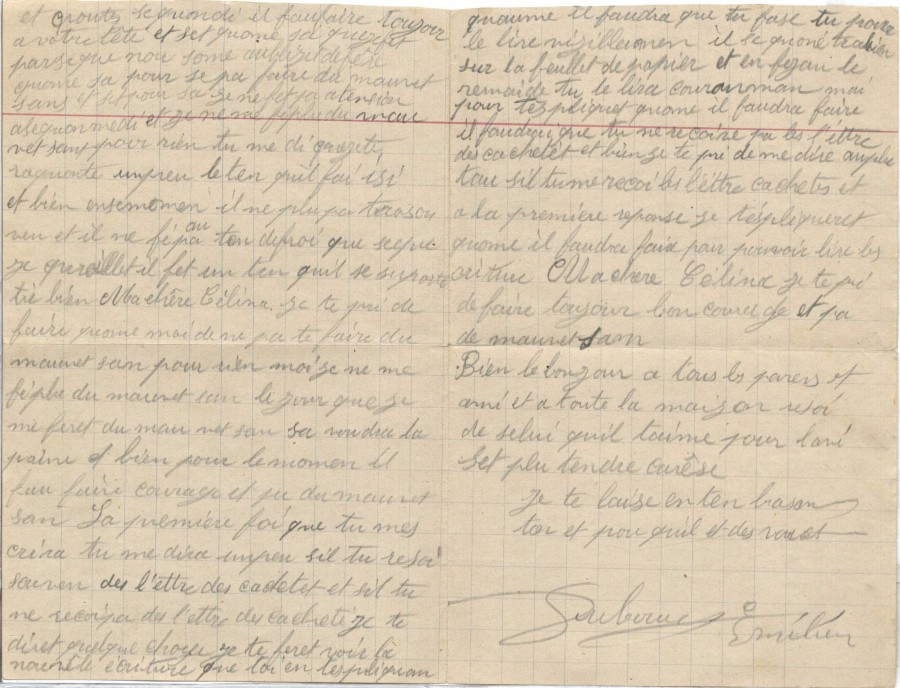 et croutes se quondi il fau faire toujour
a votre tête et set quome sa quezefet
parseque nou some oublizet defêtre
quome sa pour se pa faire du mauvet
sans et set pour sa ze ne fet pa atension
alequonmedi et ze ne me féplu du mau
vet san pour rien tu me di
raquonté unpeu le ten quil fai isi
et bien ensemomen il ne plu pa
veu et il ne fépa au ton defroi que seque
ze il fet un ten quil se suporte
trè bien Machêre Célina. ze te pri de
faire quome moi de ne pa te faire du
mauvet san pour rien moi ze ne me
féplu du mauvet san le zour que ze
me feret du mauvet san sa voudra la
paine et bien pour le momen il
fau faire courage et pa du mauvet
san La première foi que tu mes
crira tu me dira unpeu sil tu resoi
souven des l'ettre des cachetet et sil tu
ne recoipa des l'ettre des cacheté ze te
diret quelque choze ze te feret voir la
nouvèle écriture que toi en tespliquan
quome il faudra que tu fase tu poura
le lire il se quoné tra bien
sur la feullet de papier et en fezan le
remaide tu le lira couranman mai
pour tespliquet quome il faudra faire
il faudrai que tu ne recoive pa les l'ettre
des cachetêt et bien ze te pri de me dire
tou sil tu me recoi les l'êttre cachetes et
a la première reponse ze téspliqueret
quome il faudra faire pour pouvoir lire les
critue Machêre Célina ze te pri
de faire toujour bon courage et pa
de mauvet san
Bien le bonzour a tous les parens et
ami et a toute la maizon resoi
de selui quil taime pour lavi
set plu tendre carêse
Je te laise en ten brasan
ton et pou quil et des vouet
Emélien